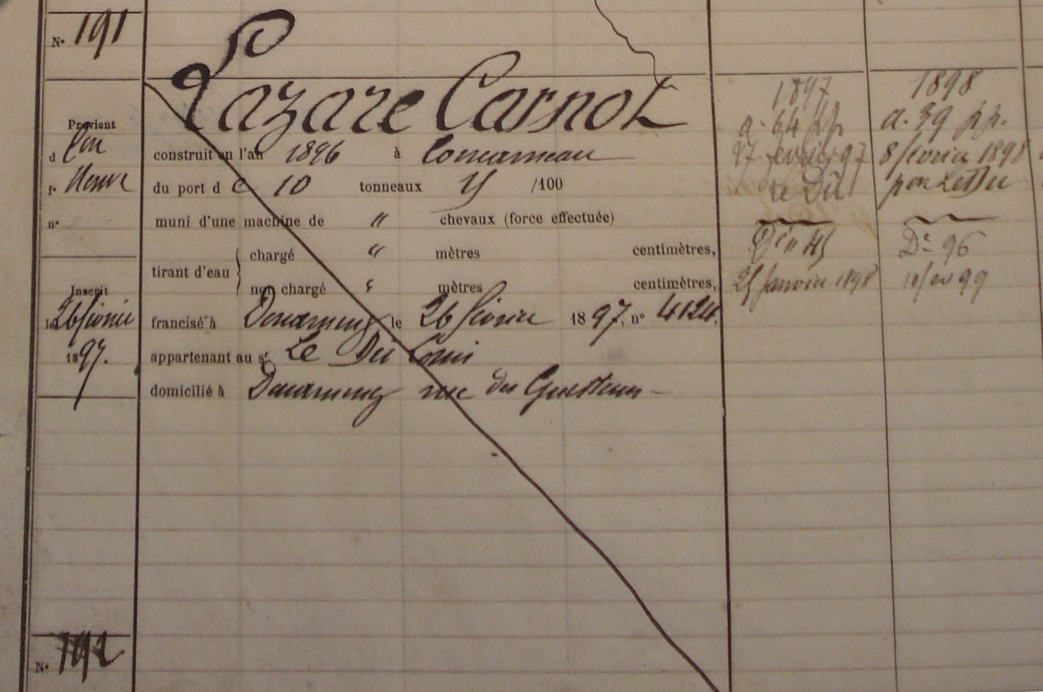 N° 191
Lazare Carnot
Provient
d
f° Neuve
n°
Inscrit
le 26 février
1897.
construit en l'an 1896 à Concarneau
du port de 10 tonneaux /100
muni d'une machine de " chevaux (force effectuée)
tirant d'eau
chargé " mètres centimètres,
non chargé " mètres centimètres,
francisé à Douarnenez le 26 février 1897, n° 4124,
appartenant au sr Le Du Louis
domicilié à Douarnenez rue du
1897
a. 64 pp.
27 février 97
Le Dû
25 Janvier 1898
1898
a. 39 pp.
8 février 1898
par Le Du
Dn 96
99
N° 192